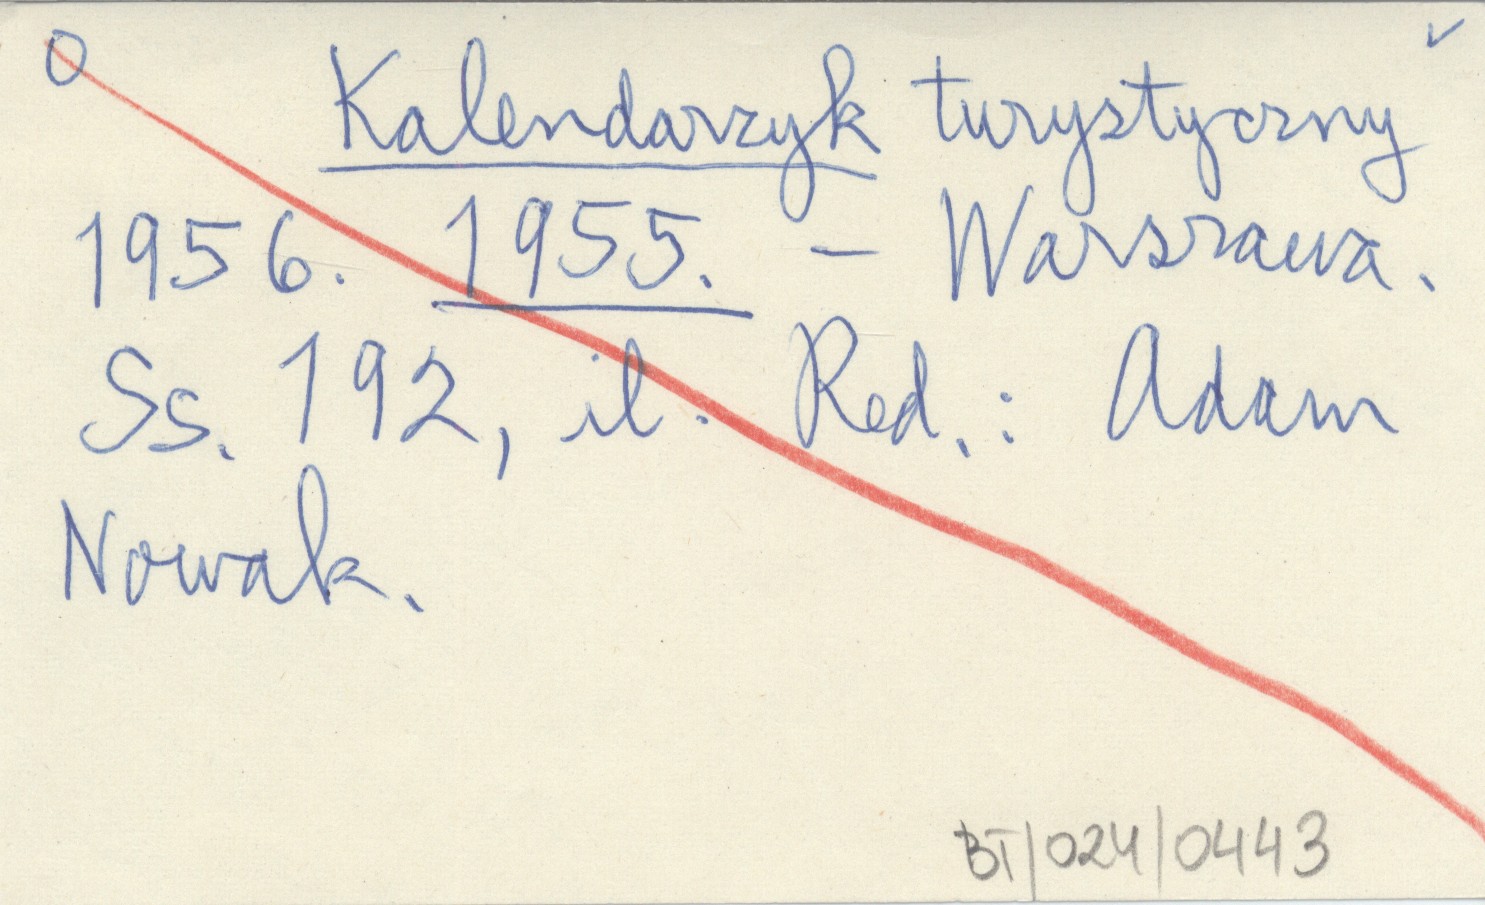 O
Kalendarzyk turystyczny
1956. 1955. – Warszawa.
Ss. 192, il. Red.: Adam
Nowak.
BT/024/0443